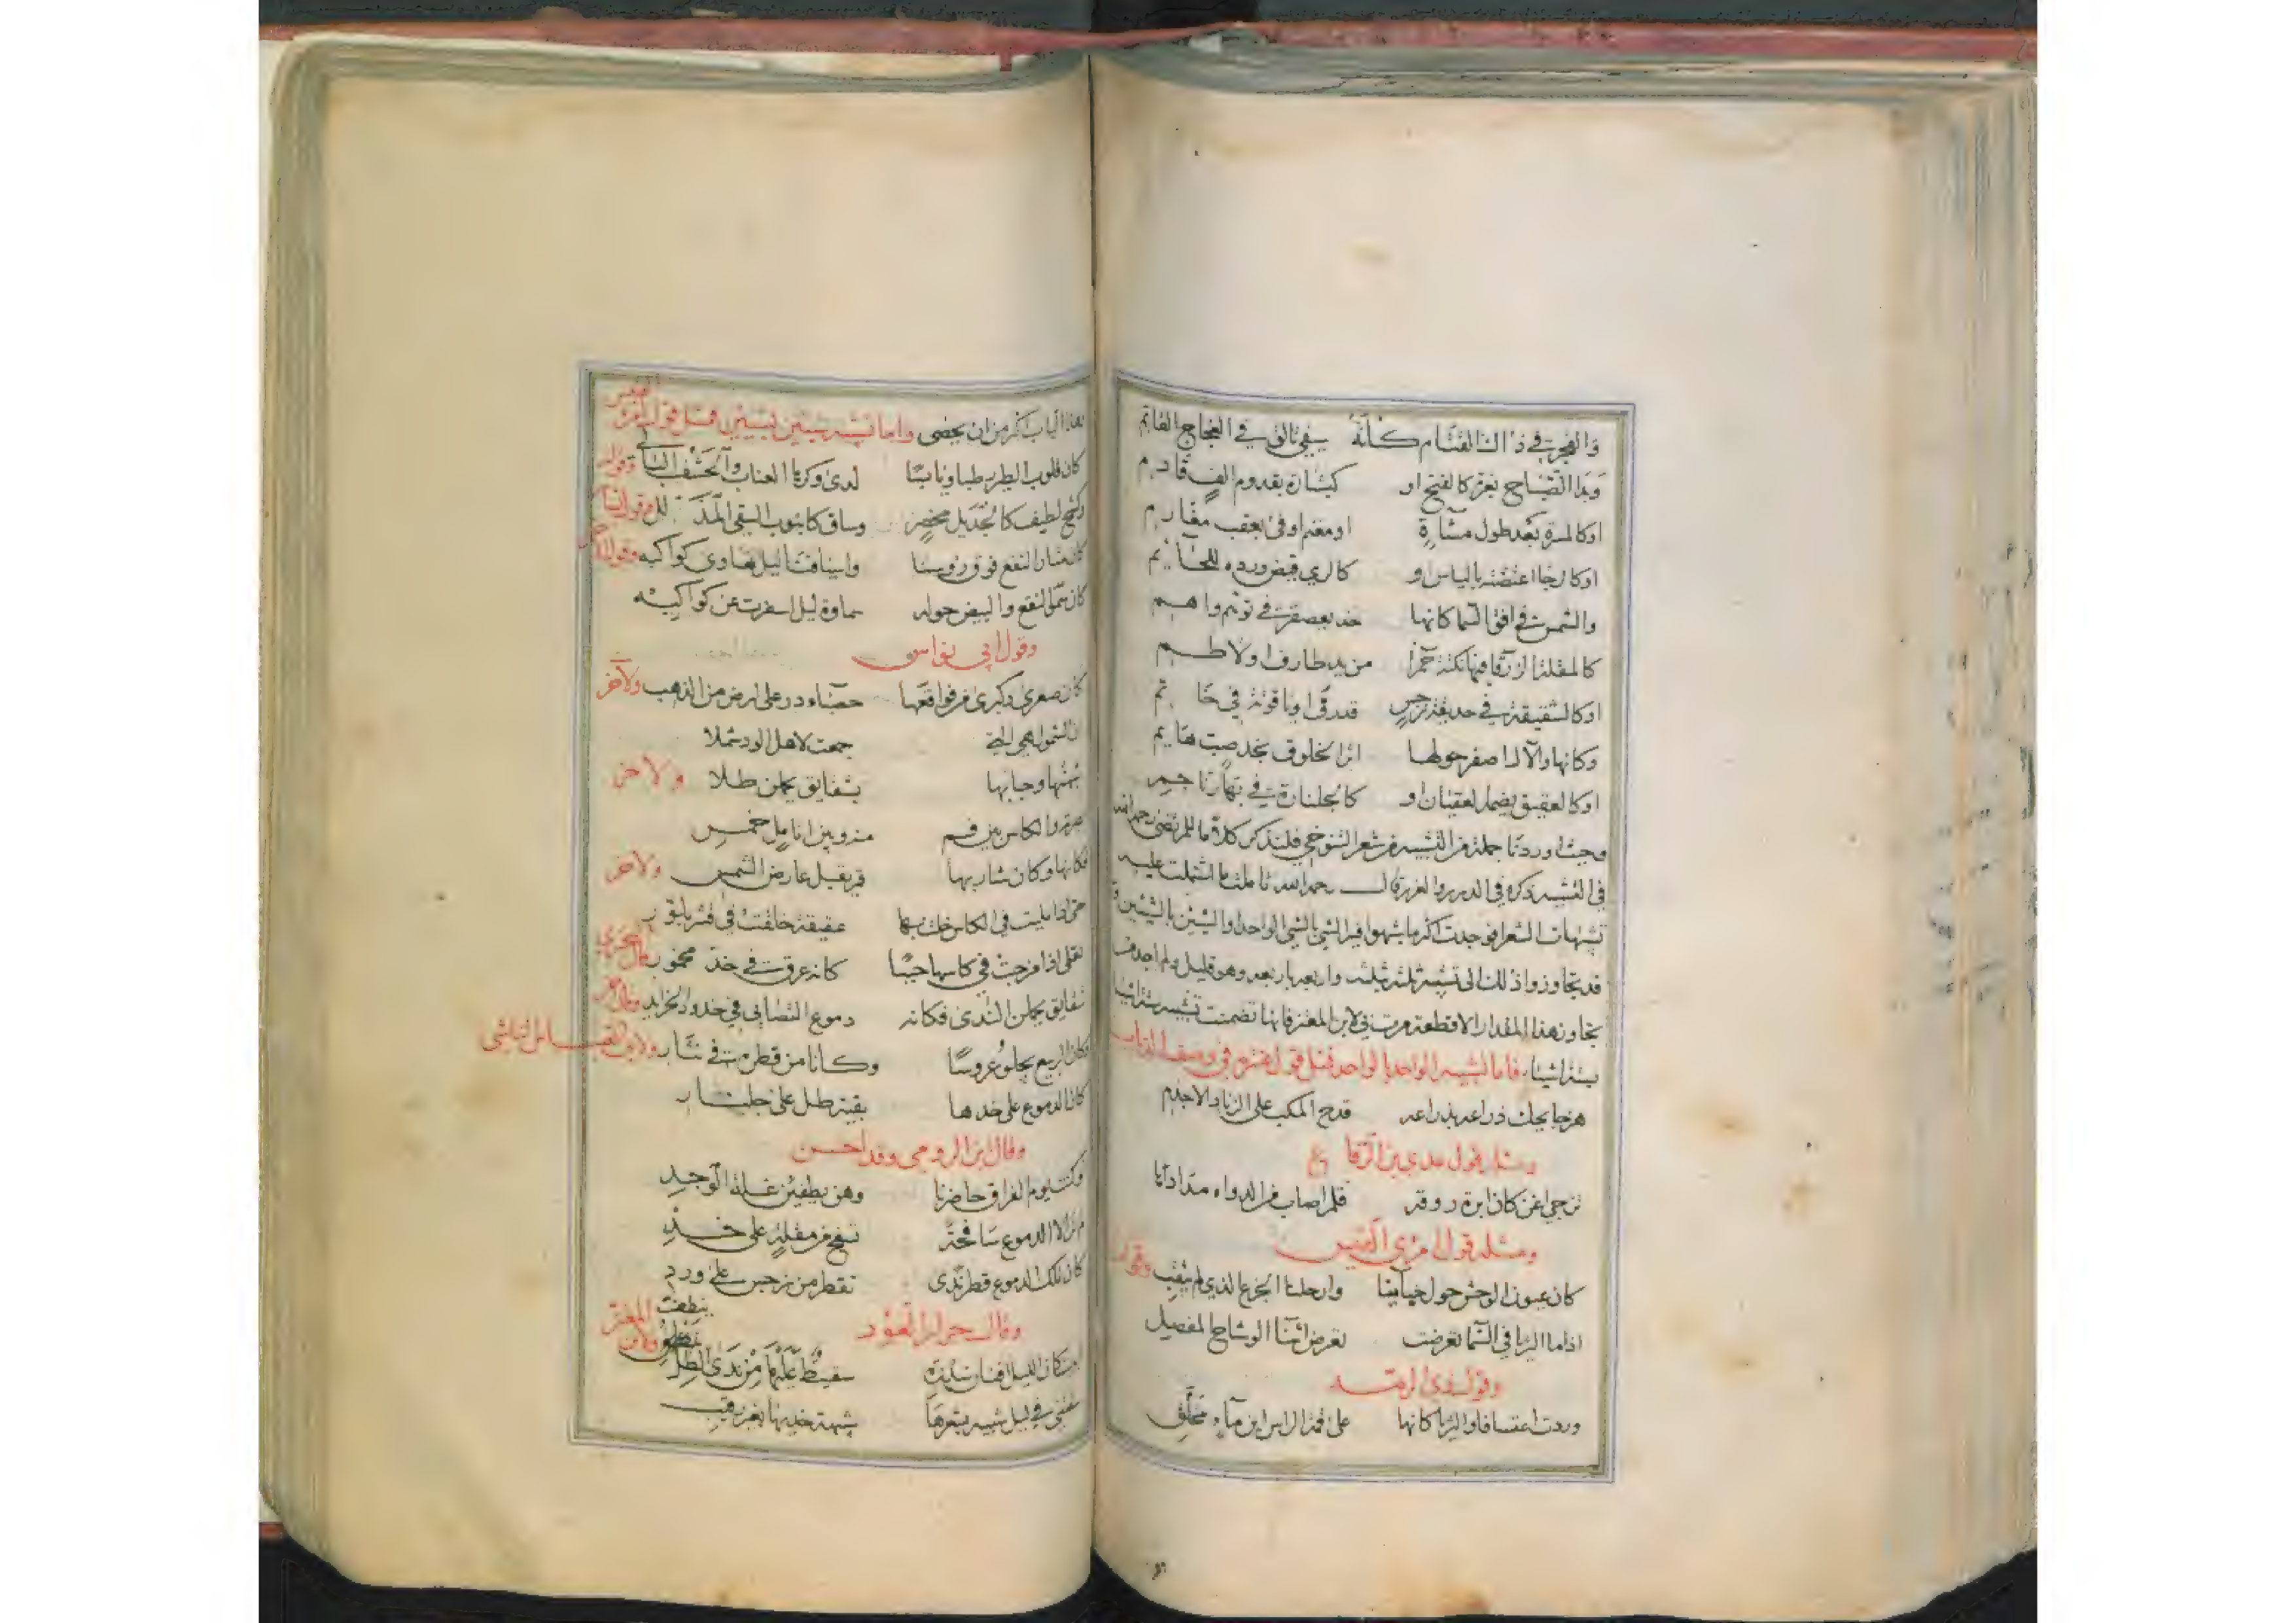 والفجر في ذاك القتام كأنه سيف تألق في العجاج القاتم
وبدا الصباح بغرة كالفتح او كبشارة بقدوم الف قادم
اوكالمسرة بعد طول مسآءة او مغنم اوفى بعقب مغارم
اوكالرجا اعتضته بالياس او كالري قيض ورده للحائم
والشمس في افق السما كانها خد تعصفر في توهم واهم
كالمقلة الزرقا فيها نكتة حمرا من يد طارف او لاطم
اوكالشقيقة في حديقة نرجس قد رقا او ياقوتة في خاتم
وكانها والآل اصفر حولها اثر الخلوق بخد صب هايم
اوكالعقيق يضم العقيان او كالجلنارة في بهار ناجم
وحيث اوردنا جملة من التشبيه من شعر التنوخي فلنذكر كلاما للمرتضى رحمه الله
في التشبيه ذكره في الدرر والغرر قال رحمه الله تاملت ما اشتملت عليه
تشبيهات الشعرا فوجدت اكثر ما شبهوا فيه الشي بالشي الواحد او الشيئين بالشيئين و
قد تجاوزوا ذلك الى تشبيه ثلثة بثلثه واربعه باربعه وهو قليل ولم اجد من
تجاوز هذا المقدار الا قطعة مرت بي لابن المعتز فانها تضمنت تشبيه ستة اشيا
بستة اشياء فاما تشبيه الواحد بالواحد فمثل قول عنتره في وصف الذباب
هزجا يحك ذراعه بذراعه قدح المكب على الزناد الاجذم
ومثله قول عدي بن الرقاع
تزجي اغن كان ابرة روقه قلم اصاب من الدواه مدادها
ومثله قول امرئ القيس
كان عيون الوحش حول خبآينا وارحلنا الجزع الذي لم يثقب وقوله
اذا ما الثريا في السما تعرضت تعرض اثنآ الوشاح المفصل
وقول ذي الرمه
وردت اعتسافا والثريا كانها على قمة الراس ابن مآء محلق
هذا الباب اكثر من ان يحصى واما تشبيه شيئين بشيئين فمثل قول امرئ القيس
كان قلوب الطير رطبا ويابسا لدى وكرها العناب والحشف البالي وقوله
وكشح لطيف كالجديل مخصر وساق كانبوب السقي المذلل وقول بشار
كان مثار النقع فوق رؤسنا واسيافنا ليل تهاوى كواكبه وقول
كان سمو النقع والبيض حوله سماوة ليل اسفرت عن كواكبه
وقول ابي نواس
كان صغرى وكبرى من فواقعها حصباء در على ارض من الذهب ولآخر
ان الشمول هي التي جمعت لاهل الود شملا
شبهتها وحبابها بشقايق يحملن طلا ولاخر
والكاس بين فم منه وبين انامل خمس
فكانها وكان شاربها قمر يقبل عارض الشمس ولاخر
كانه عرق في خد مخمور
شقايق يحملن الندى فكانه دموع التصابي في خدود الخرايد
وكان الربيع يجلو عروسا وكانا من قطره في نثار ولابي العباس الناشي
كان الدموع على خدها بقية طل على جلنار
وقال ابن الرومي وقد احسن
وكنت يوم الفراق حاضرنا وهن يطفين غلة الوجد
لم تر الا الدموع سافحة تسفح من مقلة على خد
كان تلك الدموع قطر ندى تقطر من نرجس على ورد
وقال جران العود
سقيط عليها من ندى الطل ينطف ولابن المعتز
سقتني في ليل شبيه بشعرها شبيهة خديها بغير رقيب